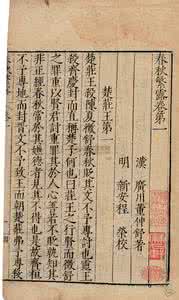 春秋繁露卷第一
漢 廣川董仲舒著
明 新安程榮校
楚莊王第一
楚莊王殺陳夏徵舒春秋貶其文不予專討也靈王
殺齊慶封而直稱楚子何也曰莊王之行賢而徵舒
之罪重以賢君討重罪其於人心善若不貶孰知其
非正經春秋常於其嫌得者見其不得也是故齊桓
不予專地而封晉文不予致王而朝楚莊弗予專殺